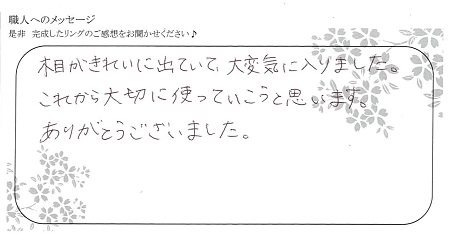 職人へのメッセージ
是非 完成したリングのご感想をお聞かせください♪
木目がきれいに出ていて、大変気に入りました。
これから大切に使っていこうと思います。
ありがとうございました。